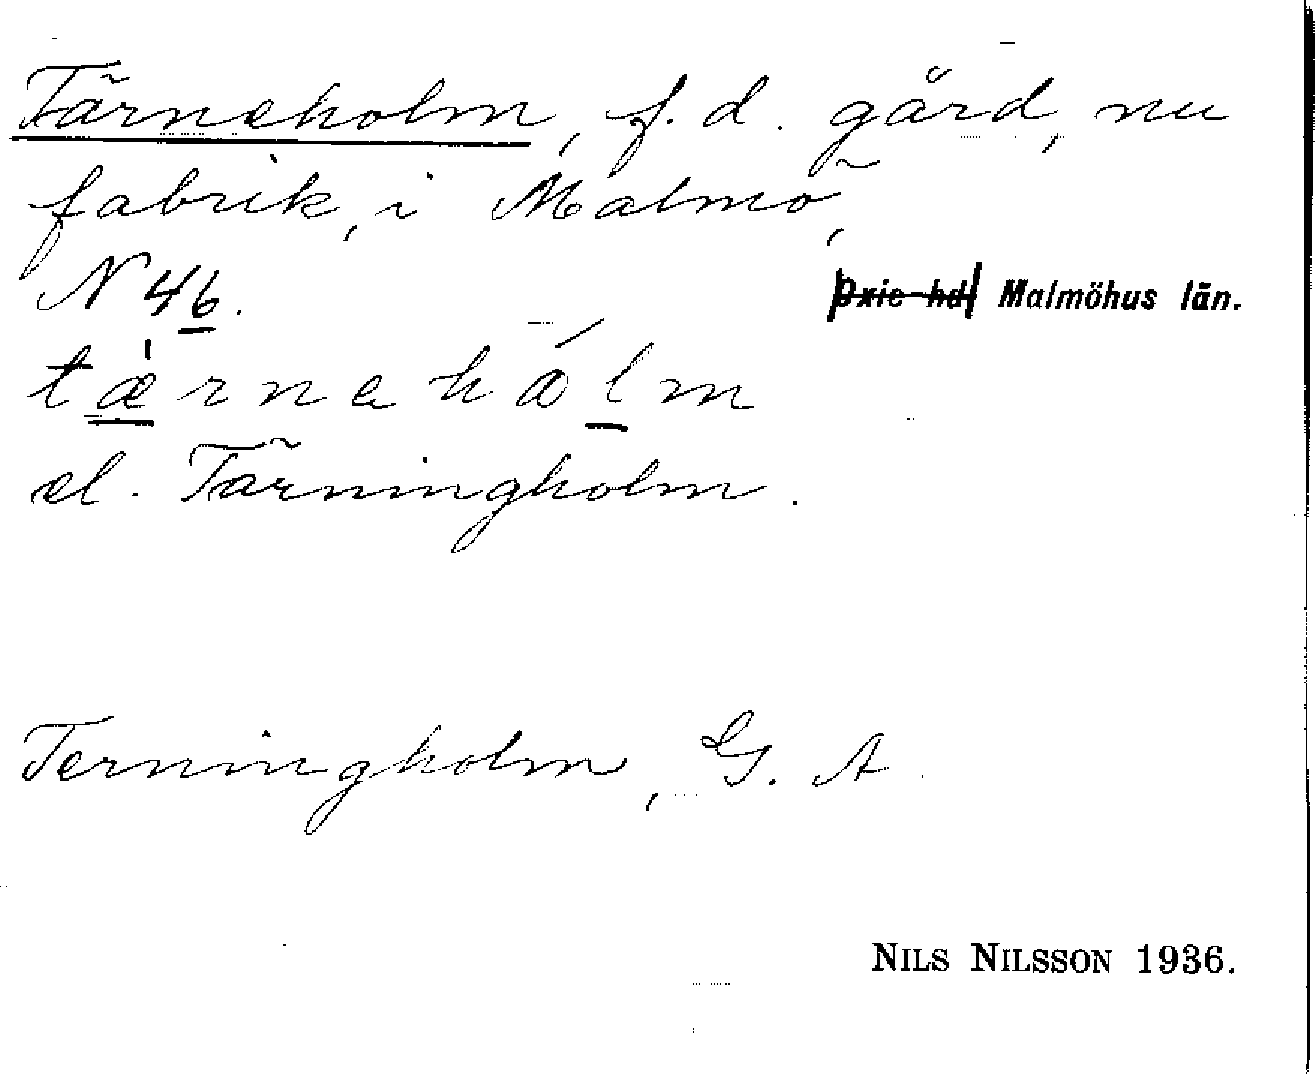 Tärneholm, f. d. gård, nu
fabrik, i Malmö,
N 46. Oxie hd Malmöhus län.
tæ̀rnehålm
el. Tärningholm.
Terningholm, G. A
NILS NILSSON 1936.